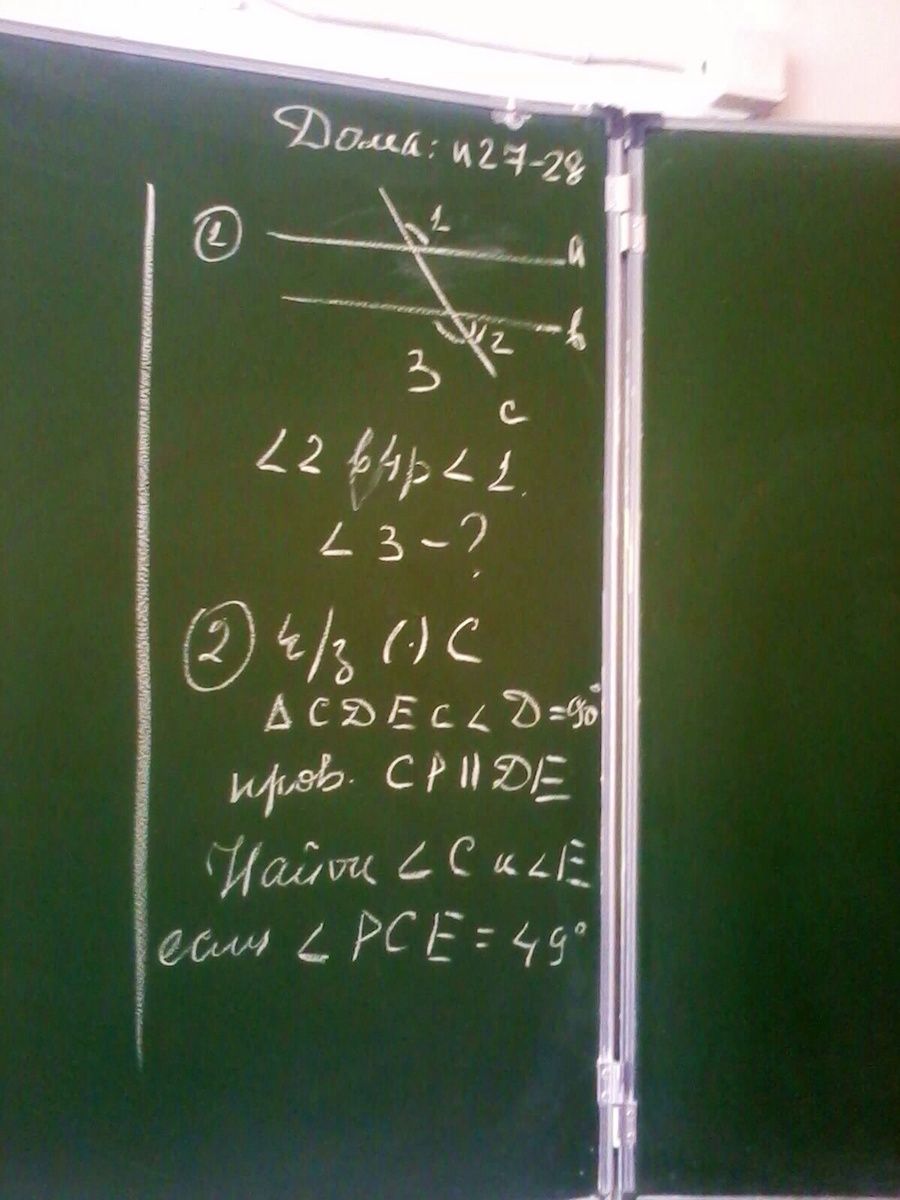 Дома: п27-28
①
1
a
b
2
3
c
∠2 в4р < 1.
∠3 - ?
② ч/з (·) C
Δ CDE с ∠D=90°
пров. CP || DE
Найти ∠C и ∠E
если ∠PCE = 49°